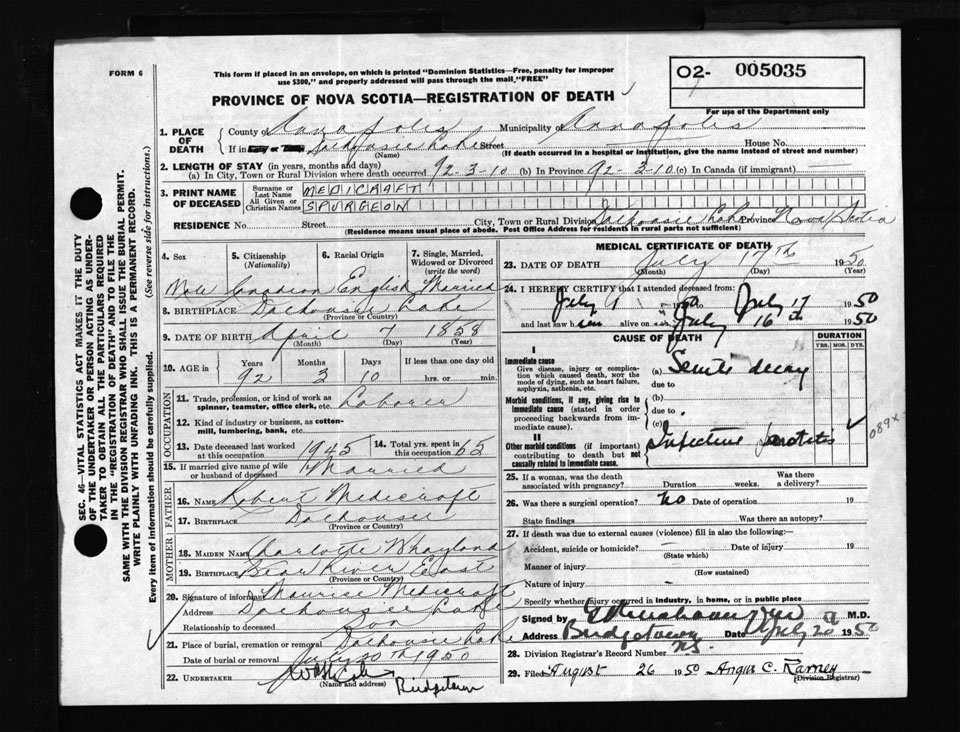 FORM 6
This form if placed in an envelope, on which is printed "Dominion Statistics—Free, penalty for improper
use $300," and properly addressed will pass through the mail "FREE"
O2- 005035
For use of the Department only
PROVINCE OF NOVA SCOTIA—REGISTRATION OF DEATH
1. PLACE OF DEATH
County of Annapolis Municipality of Annapolis
If in City or Town Dalhousie Lake Street House No.
(Name) (If death occurred in a hospital or institution, give the name instead of street and number)
2. LENGTH OF STAY (in years, months and days)
(a) In City, Town or Rural Division where death occurred 92-3-10 (b) In Province 92-3-10 (c) In Canada (if immigrant)
3. PRINT NAME OF DECEASED
Surname or Last Name MEDICRAFT
All Given or Christian Names SPURGEON
RESIDENCE No. Street City, Town or Rural Division Dalhousie Lake Province Nova Scotia
(Residence means usual place of abode. Post Office Address for residents in rural parts not sufficient)
4. Sex 5. Citizenship (Nationality) 6. Racial Origin 7. Single, Married, Widowed or Divorced (write the word)
Male Canadian English Married
8. BIRTHPLACE Dalhousie Lake
(Province or Country)
9. DATE OF BIRTH April 7 1858
(Month) (Day) (Year)
10. AGE in Years Months Days If less than one day old
92 3 10 hrs. or min.
OCCUPATION
11. Trade, profession, or kind of work as spinner, teamster, office clerk, etc. Laborer
12. Kind of industry or business, as cotton-mill, lumbering, bank, etc.
13. Date deceased last worked at this occupation 1945 14. Total yrs. spent in this occupation 65
15. If married give name of wife or husband of deceased Married
FATHER
16. NAME Robert Medicraft
17. BIRTHPLACE Dalhousie
(Province or Country)
MOTHER
18. MAIDEN NAME Charlotte Whayland
19. BIRTHPLACE Bear River East
(Province or Country)
20. Signature of informant Maurice Medicraft
Address Dalhousie Lake
Relationship to deceased Son
21. Place of burial, cremation or removal Dalhousie Lake
Date of burial or removal July 20th 1950
22. UNDERTAKER
(Name and address) Bridgetown
MEDICAL CERTIFICATE OF DEATH
23. DATE OF DEATH July 17th 1950
(Month) (Day) (Year)
24. I HEREBY CERTIFY that I attended deceased from:
July 9 1950 to July 17 1950
and last saw him alive on July 16th 1950
CAUSE OF DEATH DURATION
YRS. MOS. DYS.
I
Immediate cause
Give disease, injury or complication which caused death, not the mode of dying, such as heart failure, asphyxia, asthenia, etc.
(a) Senile decay
due to
Morbid conditions, if any, giving rise to immediate cause (stated in order proceeding backwards from immediate cause).
(b)
due to
(c)
II
Other morbid conditions (if important) contributing to death but not causally related to immediate cause.
Infective parotitis
089x
25. If a woman, was the death associated with pregnancy? Duration weeks. Was there a delivery?
26. Was there a surgical operation? No Date of operation 19
State findings Was there an autopsy?
27. If death was due to external causes (violence) fill in also the following:
Accident, suicide or homicide? Date of injury 19
(State which)
Manner of injury
(How sustained)
Nature of injury
Specify whether injury occurred in industry, in home, or in public place
Signed by M.D.
Address Bridgetown NS Date July 20 1950
28. Division Registrar's Record Number
29. Filed August 26 1950 Angus C. Ramey
(Division Registrar)
SEC. 46—VITAL STATISTICS ACT MAKES IT THE DUTY
OF THE UNDERTAKER OR PERSON ACTING AS UNDER-
TAKER TO OBTAIN ALL THE PARTICULARS REQUIRED
IN THE "REGISTRATION OF DEATH" AND TO FILE THE
SAME WITH THE DIVISION REGISTRAR WHO SHALL ISSUE THE BURIAL PERMIT.
WRITE PLAINLY WITH UNFADING INK. THIS IS A PERMANENT RECORD.
Every item of information should be carefully supplied. (See reverse side for instructions.)